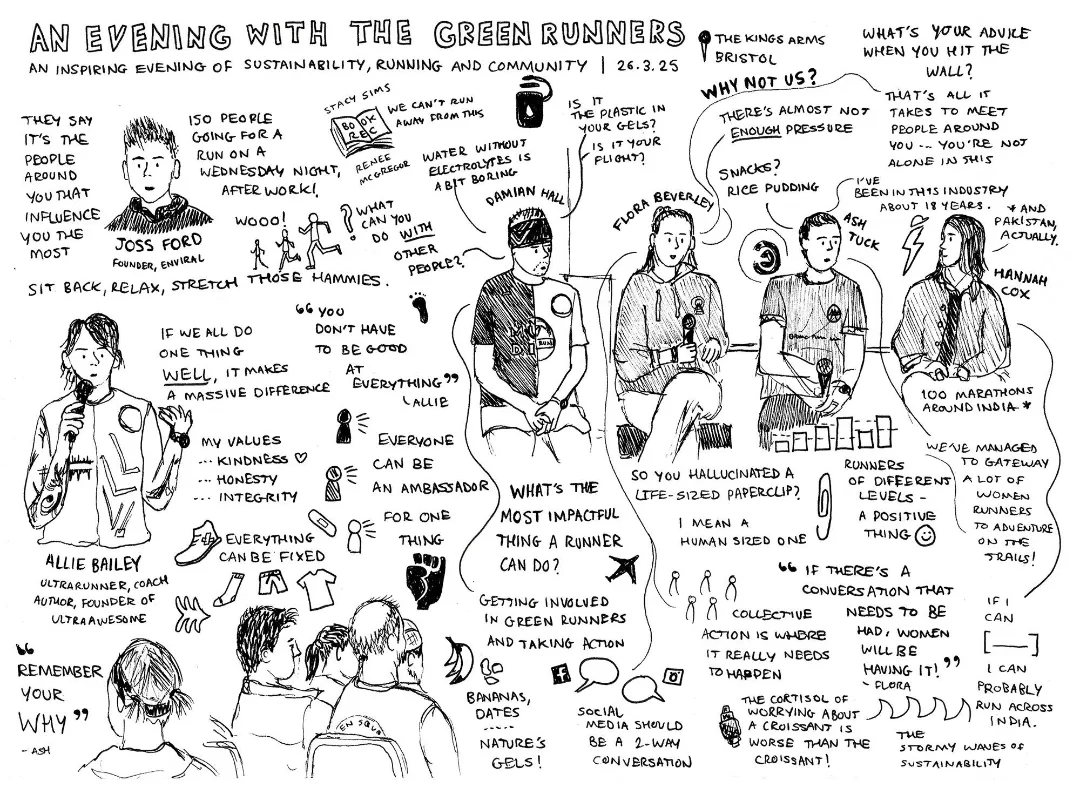 AN EVENING WITH THE GREEN RUNNERS
AN INSPIRING EVENING OF SUSTAINABILITY, RUNNING AND COMMUNITY | 26.3.25
THE KINGS ARMS
BRISTOL
WHAT'S YOUR ADVICE
WHEN YOU HIT THE
WALL?
THAT'S ALL IT
TAKES TO MEET
PEOPLE AROUND
YOU -- YOU'RE NOT
ALONE IN THIS
WHY NOT US?
THERE'S ALMOST NOT
ENOUGH PRESSURE
THEY SAY
IT'S THE
PEOPLE
AROUND
YOU THAT
INFLUENCE
YOU THE
MOST
JOSS FORD
FOUNDER, ENVIRAL
150 PEOPLE
GOING FOR A
RUN ON A
WEDNESDAY NIGHT,
AFTER WORK!
WOOO!
SIT BACK, RELAX, STRETCH THOSE HAMMIES.
STACY SIMS
BOOK
REC
RENEE
MCGREGOR
WE CAN'T RUN
AWAY FROM THIS
WATER WITHOUT
ELECTROLYTES IS
A BIT BORING
IS IT
THE PLASTIC IN
YOUR GELS?
IS IT YOUR
FLIGHT?
WHAT
CAN YOU
DO WITH
OTHER
PEOPLE?
DAMIAN HALL
FLORA BEVERLEY
SNACKS?
RICE PUDDING
ASH
TUCK
I'VE
BEEN IN THIS INDUSTRY
ABOUT 18 YEARS.
* AND
PAKISTAN,
ACTUALLY.
HANNAH
COX
100 MARATHONS
AROUND INDIA *
IF WE ALL DO
ONE THING
WELL, IT MAKES
A MASSIVE DIFFERENCE
"YOU
DON'T HAVE
TO BE GOOD
AT
EVERYTHING"
ALLIE
MY VALUES
--- KINDNESS ♡
--- HONESTY
--- INTEGRITY
EVERYONE
CAN BE
AN AMBASSADOR
FOR ONE
THING
EVERYTHING
CAN BE FIXED
ALLIE BAILEY
ULTRARUNNER, COACH
AUTHOR, FOUNDER OF
ULTRA AWESOME
RUN
WHAT'S THE
MOST IMPACTFUL
THING A RUNNER
CAN DO?
GETTING INVOLVED
IN GREEN RUNNERS
AND TAKING ACTION
SO YOU HALLUCINATED A
LIFE-SIZED PAPERCLIP?
I MEAN A
HUMAN SIZED ONE
RUNNERS
OF DIFFERENT
LEVELS -
A POSITIVE
THING ☺
WE'VE MANAGED
TO GATEWAY
A LOT OF
WOMEN
RUNNERS
TO ADVENTURE
ON THE
TRAILS!
COLLECTIVE
ACTION IS WHERE
IT REALLY NEEDS
TO HAPPEN
"IF THERE'S A
CONVERSATION THAT
NEEDS TO BE
HAD, WOMEN
WILL BE
HAVING IT!"
- FLORA
IF I
CAN
[----]
I CAN
PROBABLY
RUN ACROSS
INDIA.
"REMEMBER
YOUR
WHY"
- ASH
EN SQUA
BANANAS,
DATES
-----
NATURE'S
GELS!
SOCIAL
MEDIA SHOULD
BE A 2-WAY
CONVERSATION
THE CORTISOL OF
WORRYING ABOUT
A CROISSANT IS
WORSE THAN THE
CROISSANT!
THE
STORMY WAVES OF
SUSTAINABILITY